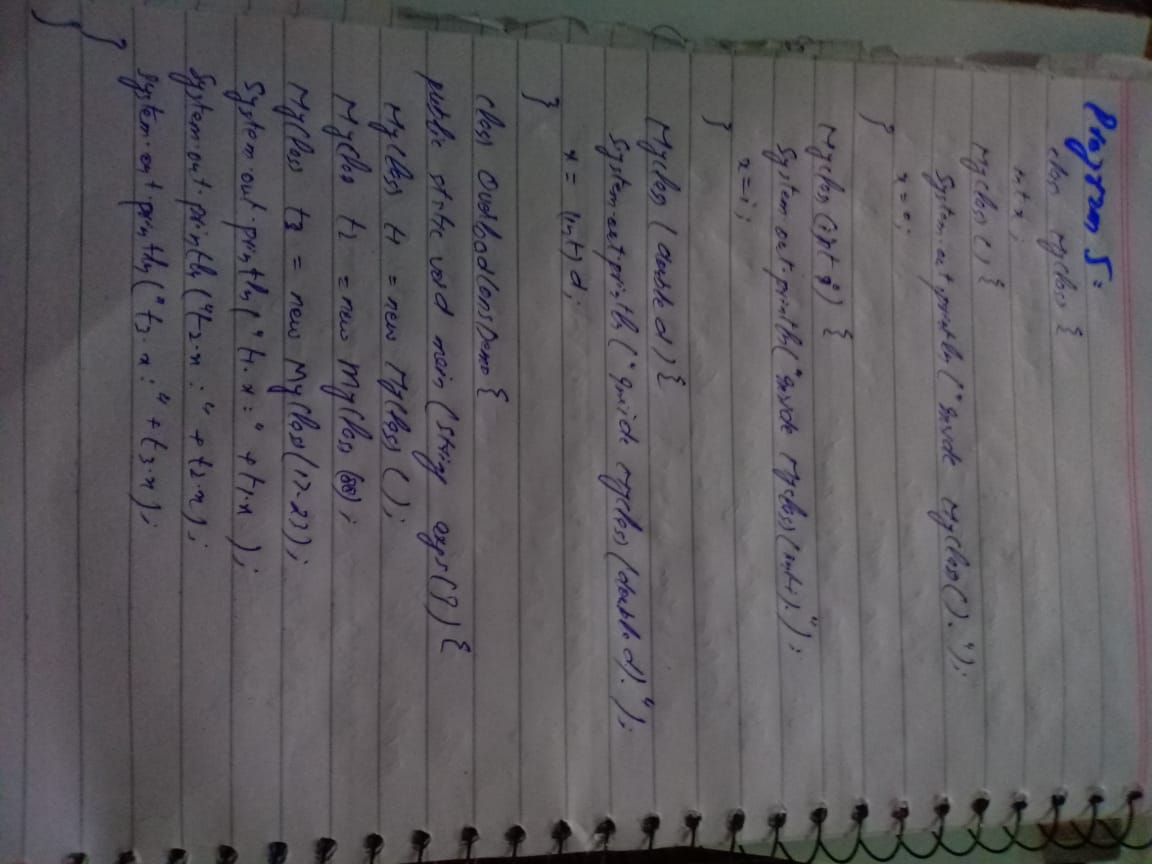 Program 5:
class Myclass {
int x;
Myclass() {
System.out.println("Inside Myclass().");
x=0;
}
Myclass(int i) {
System.out.println("Inside Myclass(int i).");
x=i;
}
Myclass(double d) {
System.out.println("Inside Myclass(double d).");
x = (int) d;
}
class OverloadConsDemo {
public static void main(String args[]) {
Myclass t1 = new Myclass();
Myclass t2 = new Myclass(88);
Myclass t3 = new Myclass(17.23);
System.out.println("t1.x: " + t1.x);
System.out.println("t2.x: " + t2.x);
System.out.println("t3.x: " + t3.x);
}
}